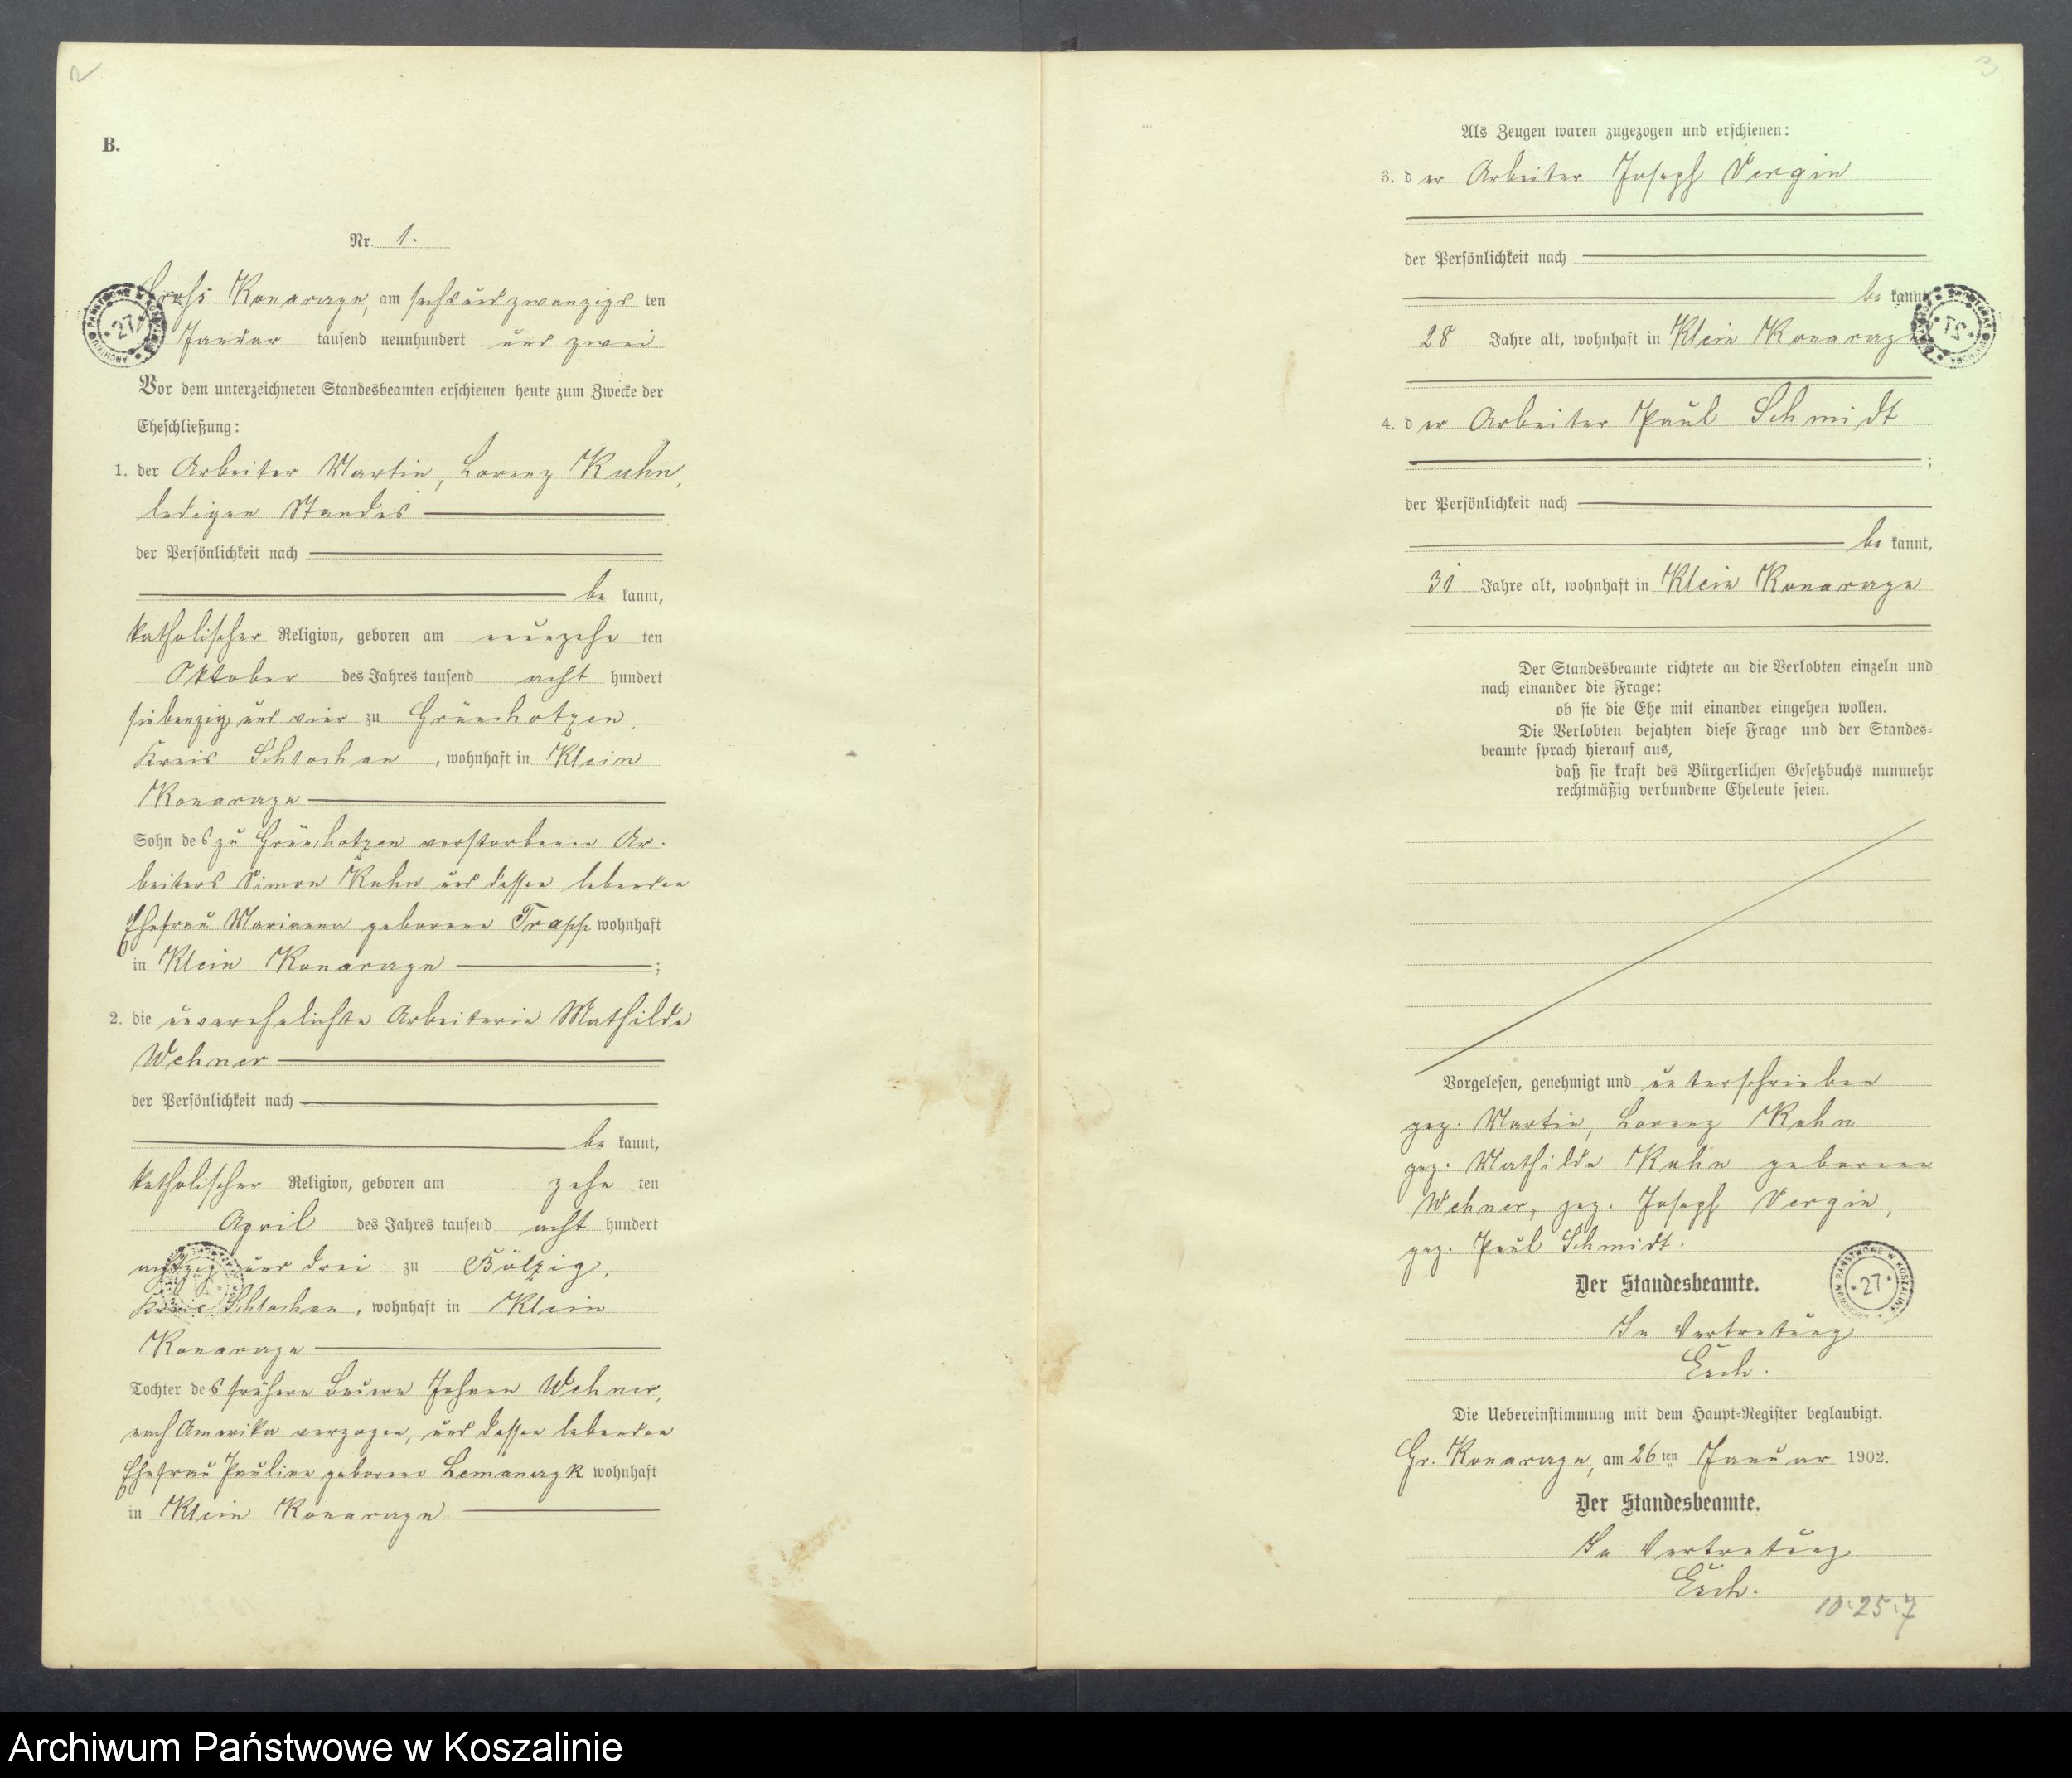 2
B.
Nr. 1.
Gross Konarzyn, am sechs und zwanzigs ten
Januar tausend neunhundert und zwei
Vor dem unterzeichneten Standesbeamten erschienen heute zum Zwecke der
Eheschließung:
1. der Arbeiter Martin, Lorenz Kuhn,
ledigen Standes
der Persönlichkeit nach
be kannt,
katholischer Religion, geboren am neunzehn ten
Oktober des Jahres tausend acht hundert
siebenzig und vier zu Grünchotzen,
Kreis Schlochau, wohnhaft in Klein
Konarzyn
Sohn des zu Grünchotzen verstorbenen Ar-
beiters Simon Kuhn und dessen lebenden
Ehefrau Marianna geborene Trapp wohnhaft
in Klein Konarzyn ;
2. die unverehelichte Arbeiterin Mathilde
Wehner
der Persönlichkeit nach
be kannt,
katholischer Religion, geboren am zehn ten
April des Jahres tausend acht hundert
achtzig und drei zu Bölzig,
Kreis Schlochau, wohnhaft in Klein
Konarzyn
Tochter des frühern Bauern Johann Wehner,
nach Amerika verzogen, und dessen lebenden
Ehefrau Pauline geborene Lemanczyk wohnhaft
in Klein Konarzyn
3
Als Zeugen waren zugezogen und erschienen:
3. d er Arbeiter Joseph Vergin
der Persönlichkeit nach
be kannt
28 Jahre alt, wohnhaft in Klein Konarzyn
4. d er Arbeiter Paul Schmidt
;
der Persönlichkeit nach
be kannt,
31 Jahre alt, wohnhaft in Klein Konarzyn
Der Standesbeamte richtete an die Verlobten einzeln und
nach einander die Frage:
ob sie die Ehe mit einander eingehen wollen.
Die Verlobten bejahten diese Frage und der Standes-
beamte sprach hierauf aus,
daß sie kraft des Bürgerlichen Gesetzbuchs nunmehr
rechtmäßig verbundene Eheleute seien.
Vorgelesen, genehmigt und unterschrieben
gez. Martin, Lorenz Kuhn
gez. Mathilde Kuhn geborene
Wehner, gez. Joseph Vergin,
gez. Paul Schmidt.
Der Standesbeamte.
In Vertretung
Die Uebereinstimmung mit dem Haupt-Register beglaubigt.
Gr. Konarzyn, am 26 ten Januar 1902.
Der Standesbeamte.
In Vertretung
10.25.7
ARCHIWUM PAŃSTWOWE W KOSZALINIE 27
Archiwum Państwowe w Koszalinie